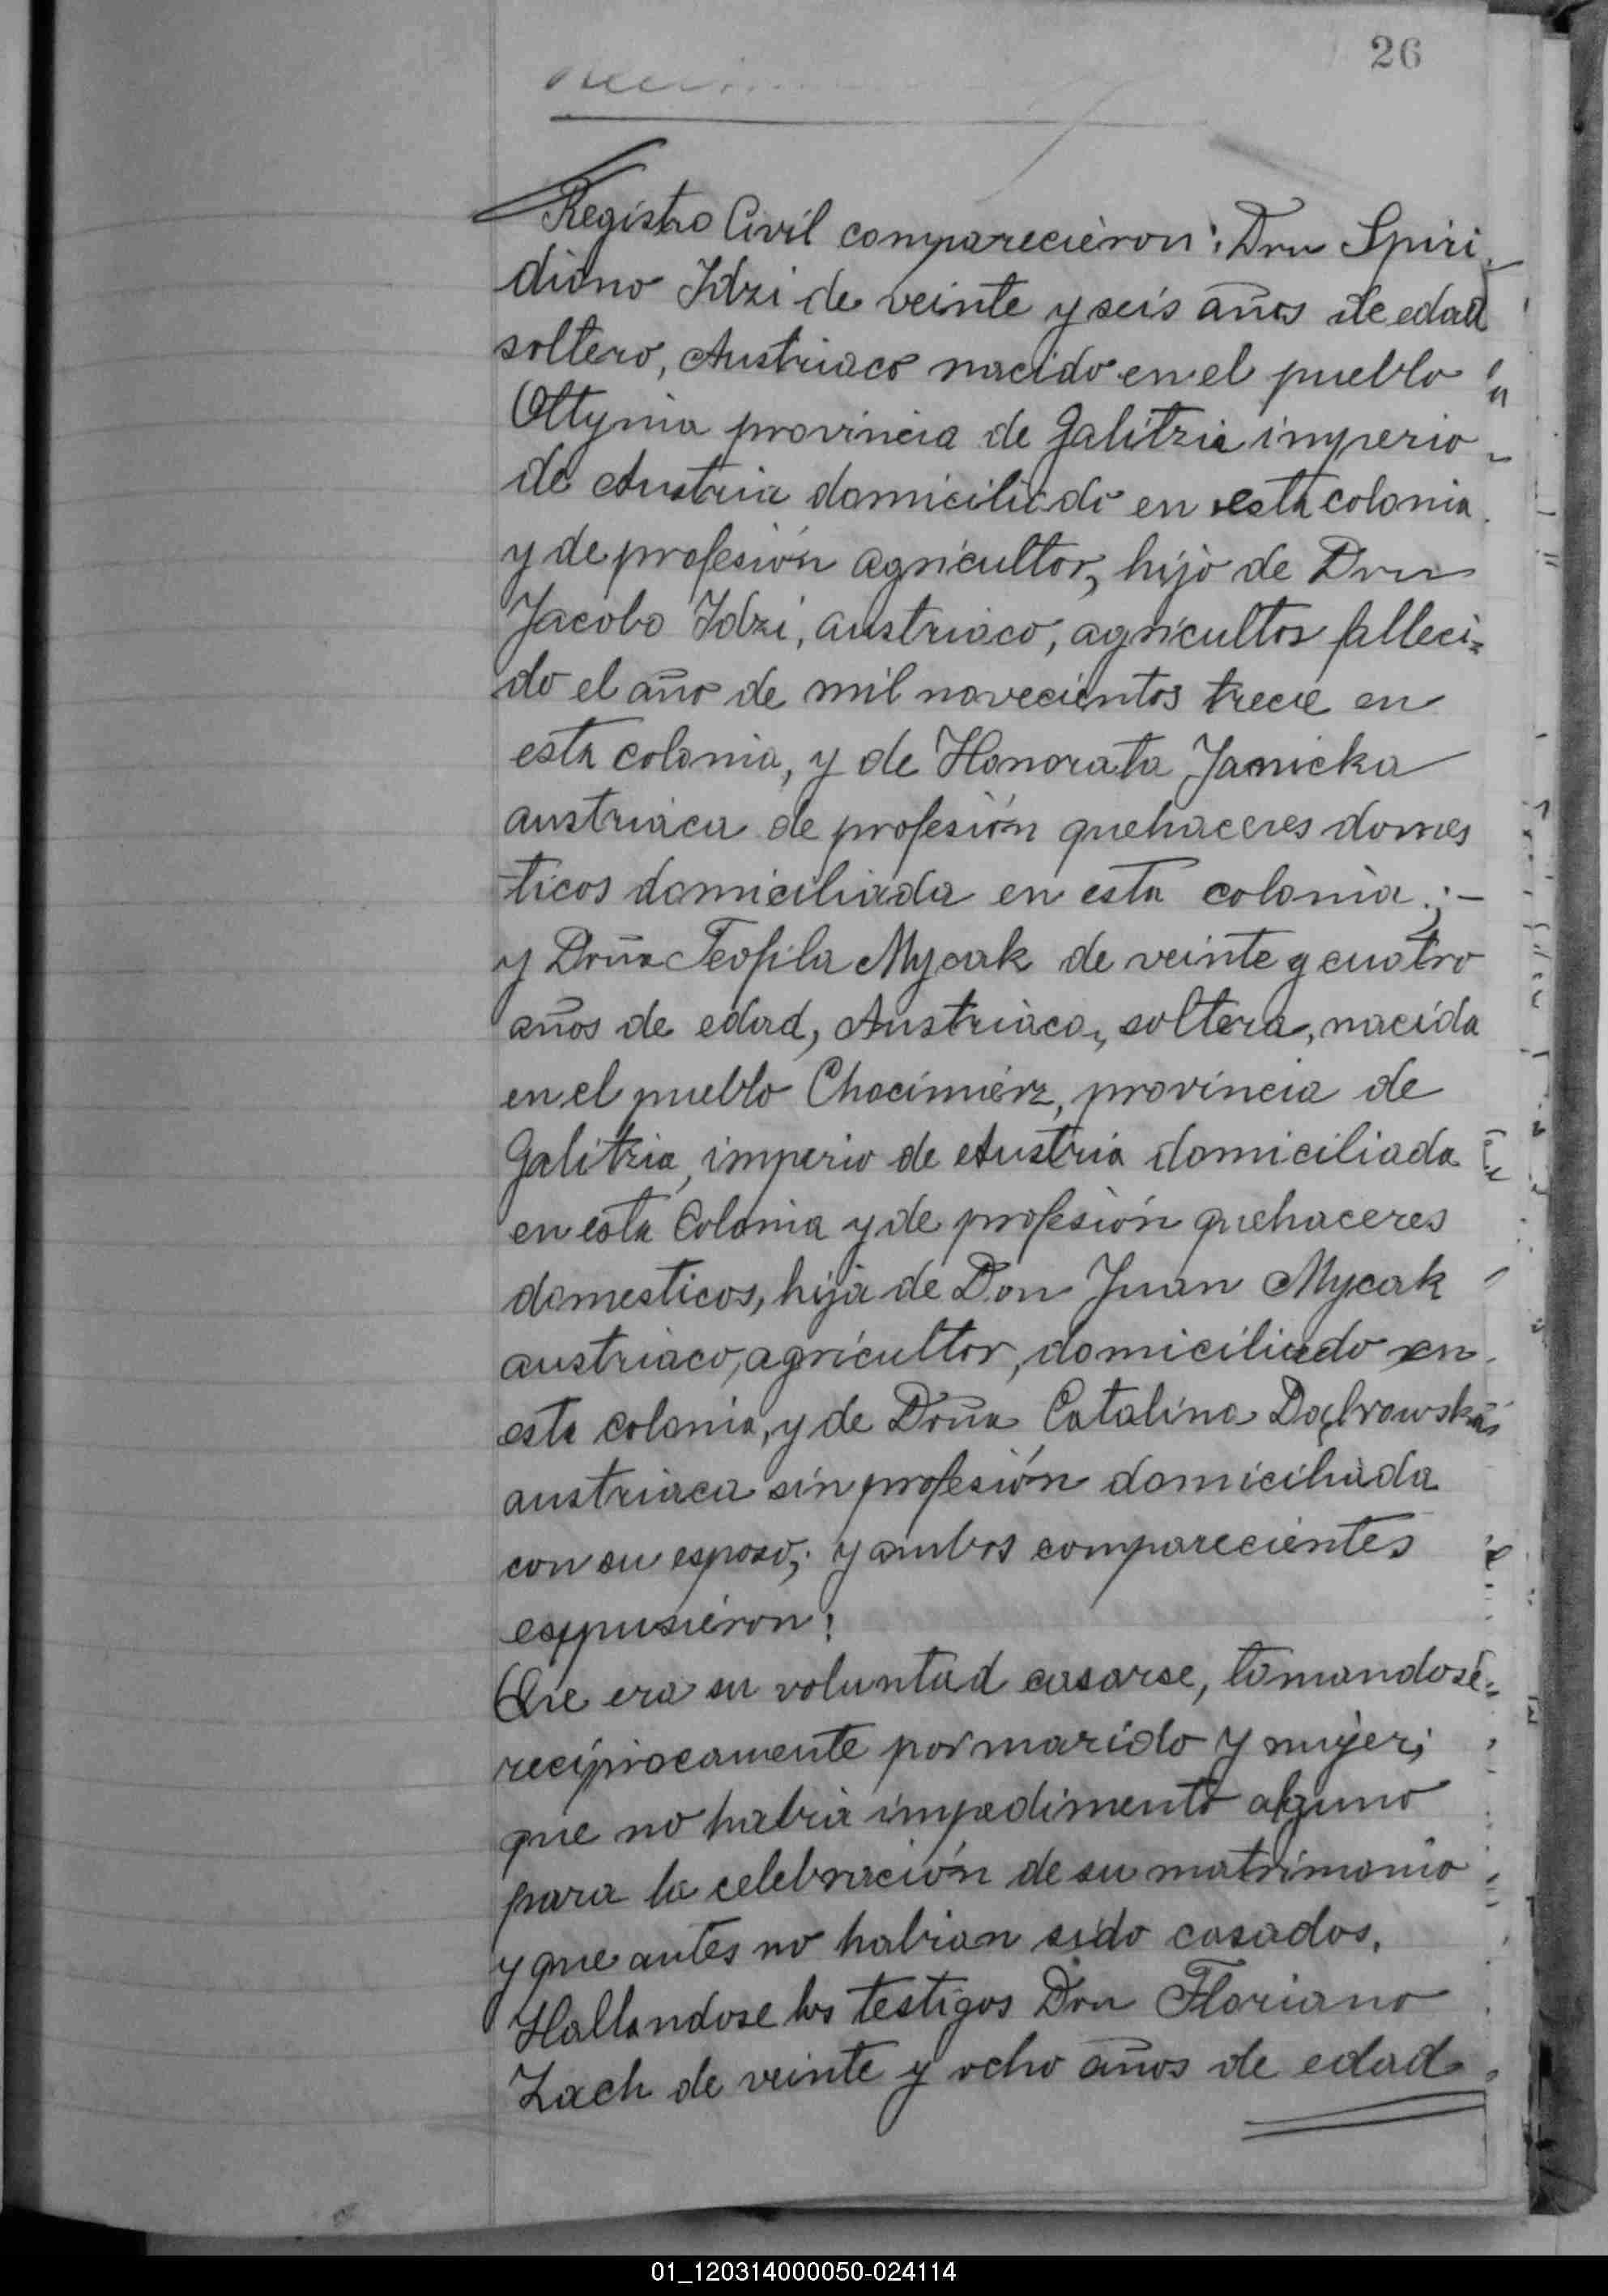 26
Registro Civil comparecieron: Don Spiri
diono Idzi de veinte y seis años de edad
soltero, Austriaco nacido en el pueblo
Ottynia provincia de Galitzia imperio
de Austria domiciliado en esta colonia
y de profesión agricultor, hijo de Don
Jacobo Idzi, austriaco, agricultor falleci=
do el año de mil novecientos trece en
esta colonia, y de Honorata Janicka
austriaca de profesión quehaceres domes
ticos domiciliada en esta colonia ;-
y Doña Teofila Mycak de veinte y cuatro
años de edad, Austriaca, soltera, nacida
en el pueblo Chocimierz, provincia de
Galitzia, imperio de Austria domiciliada
en esta Colonia y de profesión quehaceres
domesticos, hija de Don Juan Mycak
austriaco, agricultor, domiciliado en
esta colonia, y de Doña Catalina Dąbrowska
austriaca sin profesión domiciliada
con su esposo; y ambos comparecientes
espusieron:
Que era su voluntad casarse, tomandose
reciprocamente por marido y mujer;
que no habia impedimento alguno
para la celebración de su matrimonio
y que antes no habian sido casados.
Hallandose los testigos Don Floriano
Zach de veinte y ocho años de edad
01_120314000050-024114